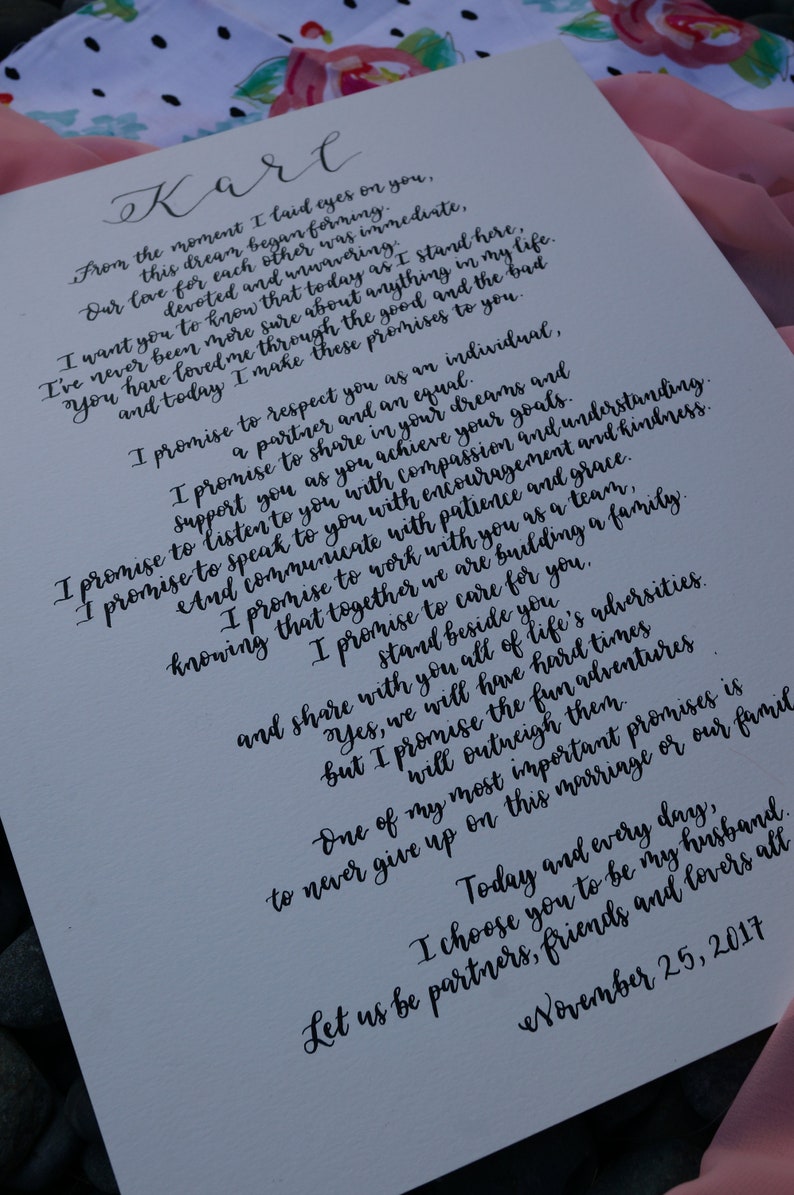 Karl
From the moment I laid eyes on you,
this dream began forming.
Our love for each other was immediate,
devoted and unwavering.
I want you to know that today as I stand here,
I've never been more sure about anything in my life.
You have loved me through the good and the bad
and today I make these promises to you.
I promise to respect you as an individual,
a partner and an equal.
I promise to share in your dreams and
support you as you achieve your goals.
I promise to listen to you with compassion and understanding.
I promise to speak to you with encouragement and kindness.
And communicate with patience and grace.
I promise to work with you as a team,
knowing that together we are building a family.
I promise to care for you,
stand beside you
and share with you all of life's adversities.
Yes, we will have hard times
but I promise the fun adventures
will outweigh them.
One of my most important promises is
to never give up on this marriage or our famil
Today and every day,
I choose you to be my husband.
Let us be partners, friends and lovers all
November 25, 2017